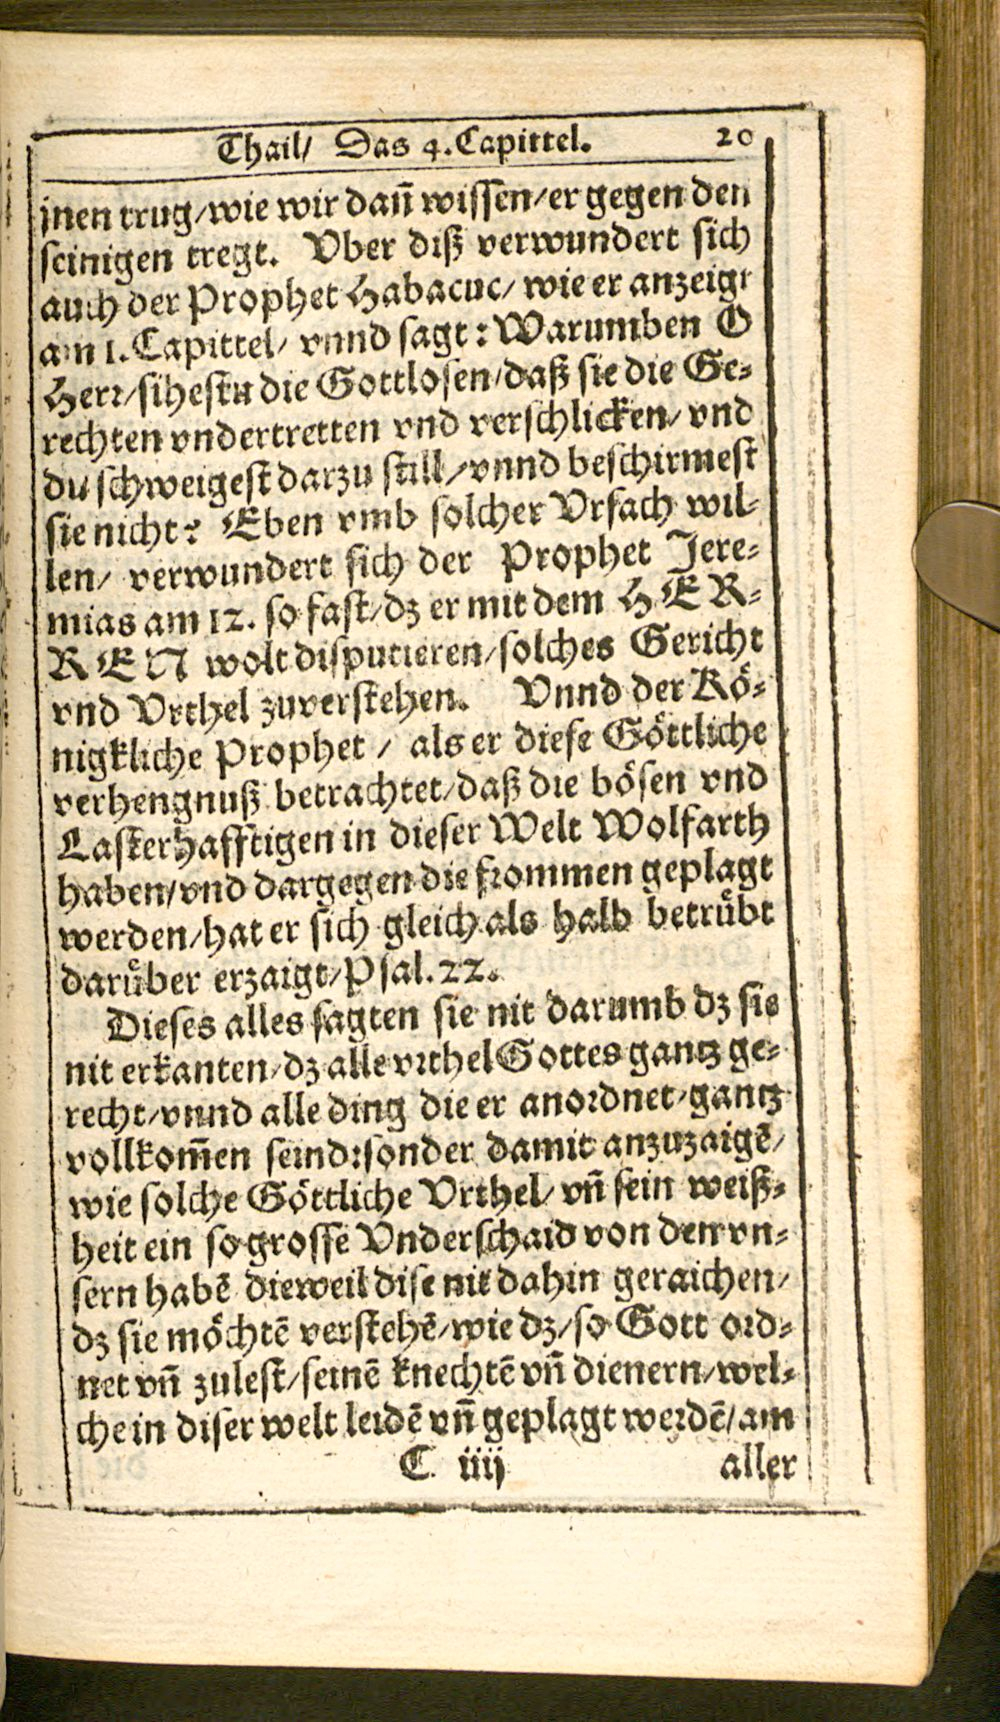 Thail/ Das 4. Capittel. 20
jnen trug/wie wir dañ wissen/er gegen den
seinigen tregt. Vber diß verwundert sich
auch der Prophet Habacuc/ wie er anzeigt
am 1. Capittel/ vnnd sagt: Warumben O
Herr/sihestu die Gottlosen/daß sie die Ge-
rechten vndertretten vnd verschlicken/ vnd
du schweigest darzu still/vnnd beschirmest
sie nicht? Eben vmb solcher Vrsach wil-
len/ verwundert sich der Prophet Jere-
mias am 12. so fast/dz er mit dem HER-
REN wolt disputieren/solches Gericht
vnd Vrthel zuverstehen. Vnnd der Kö-
nigkliche Prophet / als er diese Göttliche
verhengnuß betrachtet/daß die bösen vnd
Lasterhafftigen in dieser Welt Wolfarth
haben/vnd dargegen die frommen geplagt
werden/hat er sich gleich als halb betrübt
darüber erzaigt/Psal. 22.
Dieses alles sagten sie nit darumb dz sie
nit erkanten/dz alle vrthel Gottes gantz ge-
recht/vnnd alle ding die er anordnet/gantz
vollkom̃en seind: sonder damit anzuzaigẽ/
wie solche Göttliche Vrthel/ vñ sein weiß-
heit ein so grosse Vnderschaid von den vn-
sern habẽ dieweil dise nit dahin geraichen/
dz sie möchtẽ verstehẽ/wie dz/so Gott ord-
net vñ zulest/seinẽ knechtẽ vñ dienern/wel-
che in diser welt leidẽ vñ geplagt werdẽ/am
C iiij aller